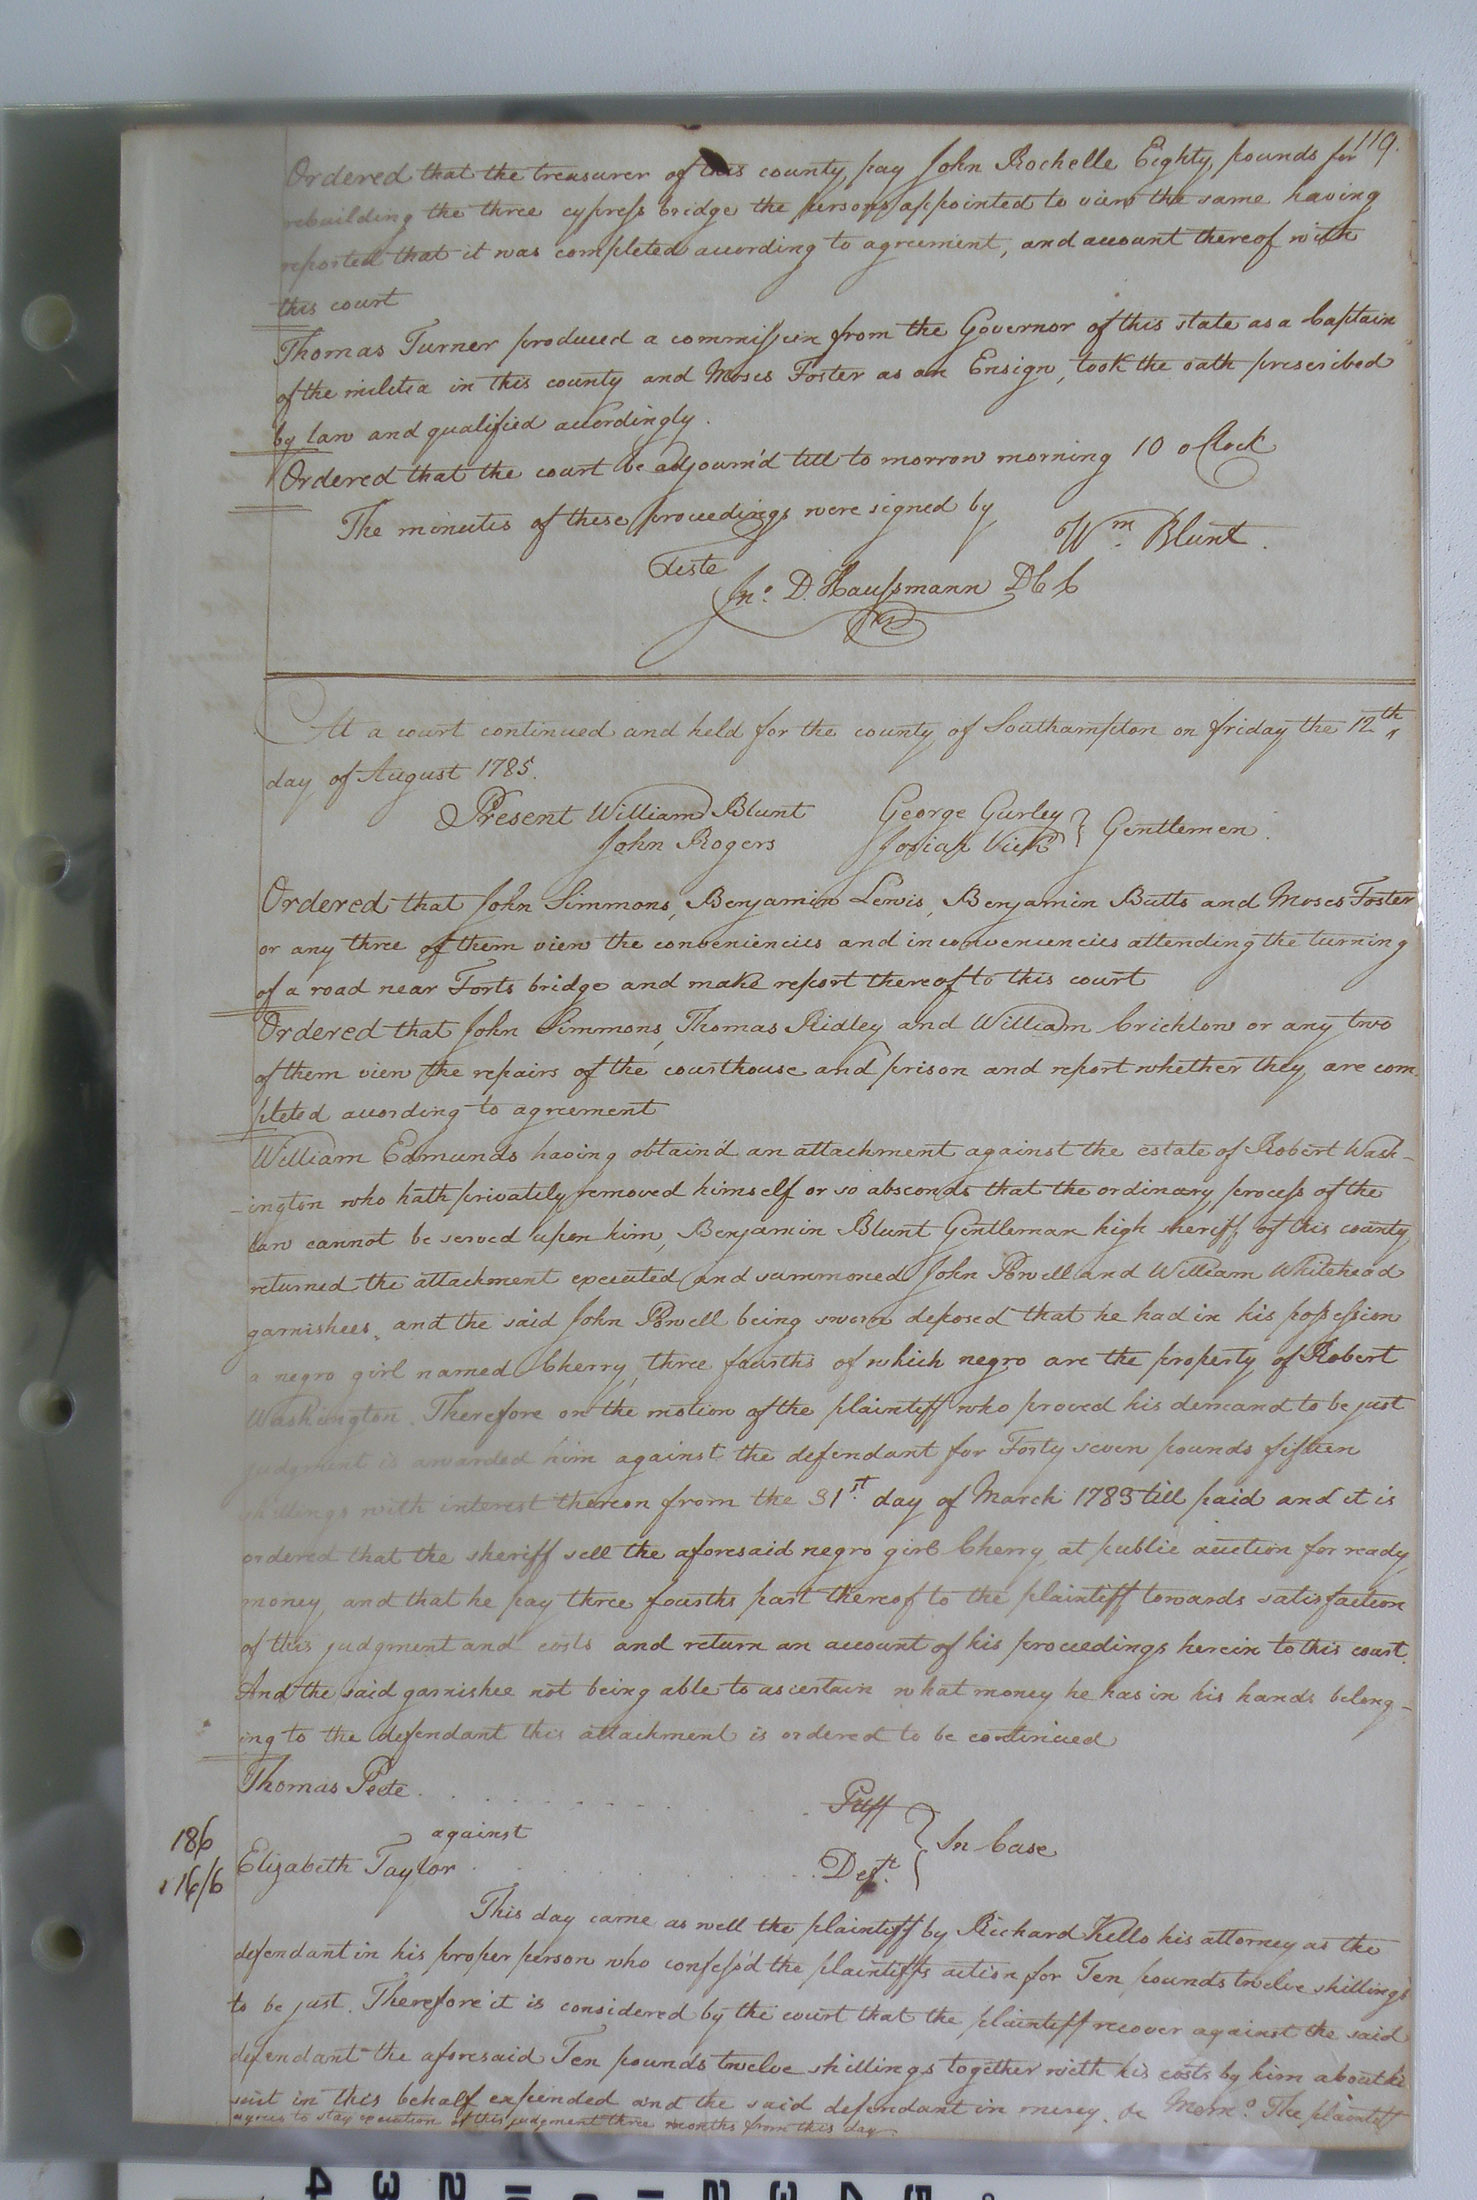 119.
Ordered that the treasurer of this county pay John Rochelle Eighty pounds for
rebuilding the three cypress bridge the persons appointed to view the same having
reported that it was completed according to agreement, and account thereof with
this court
Thomas Turner produced a commission from the Governor of this state as a Captain
of the militia in this county and Moses Foster as an Ensign, took the oath prescribed
by law and qualified accordingly.
Ordered that the court be adjourn'd till to morrow morning 10 oClock
The minutes of these proceedings were signed by
Wm. Blunt.
Teste
Jno. D. Haussmann DCC
At a court continued and held for the county of Southampton on friday the 12th
day of August 1785.
Present William Blunt George Gurley } Gentlemen.
John Rogers Josiah Vick
Ordered that John Simmons, Benjamin Lewis, Benjamin Butts and Moses Foster
or any three of them view the conveniencies and inconveniencies attending the turning
of a road near Forts bridge and make report thereof to this court
Ordered that John Simmons, Thomas Ridley and William Crichlow or any two
of them view the repairs of the courthouse and prison and report whether they are com
pleted according to agreement
William Edmunds having obtain'd an attachment against the estate of Robert Wash-
-ington who hath privately removed himself or so absconds that the ordinary process of the
law cannot be served upon him, Benjamin Blunt Gentleman high sheriff of this county
returned the attachment executed and summoned John Powell and William Whitehead
garnishees, and the said John Powell being sworn deposed that he had in his possession
a negro girl named Cherry, three fourths of which negro are the property of Robert
Washington. Therefore on the motion of the plaintiff who proved his demand to be just
judgment is awarded him against the defendant for Forty seven pounds fifteen
shillings with interest thereon from the 31st. day of March 1783 till paid and it is
ordered that the sheriff sell the aforesaid negro girl Cherry at public auction for ready
money and that he pay three fourths part thereof to the plaintiff towards satisfaction
of this judgment and costs and return an account of his proceedings herein to this court.
And the said garnishee not being able to ascertain what money he has in his hands belong-
ing to the defendant this attachment is ordered to be continued
Thomas Peete Ptff
against } In Case
186
Elizabeth Taylor Deft.
16/6
This day came as well the plaintiff by Richard Kello his attorney as the
defendant in his proper person who confess'd the plaintiffs action for Ten pounds twelve shillings
to be just. Therefore it is considered by the court that the plaintiff recover against the said
defendant the aforesaid Ten pounds twelve shillings together with his costs by him about his
suit in this behalf expended and the said defendant in mercy &c Memo. The plaintiff
agrees to stay execution of this judgment three months from this day
4 3 2 1 2 3 4 5